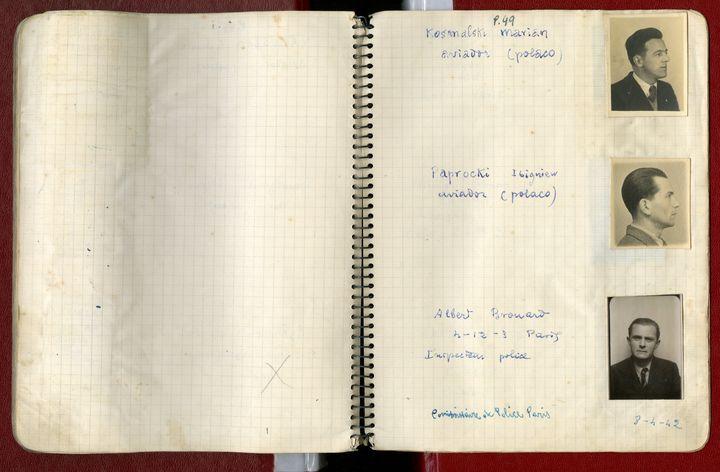 P.49
Kosmalski Marian
aviador (polaco)
Paprocki Zbigniew
aviador (polaco)
Albert Brouard
4-12-3 Paris
Inspecteur police
Commissaire de Police Paris
8-4-42